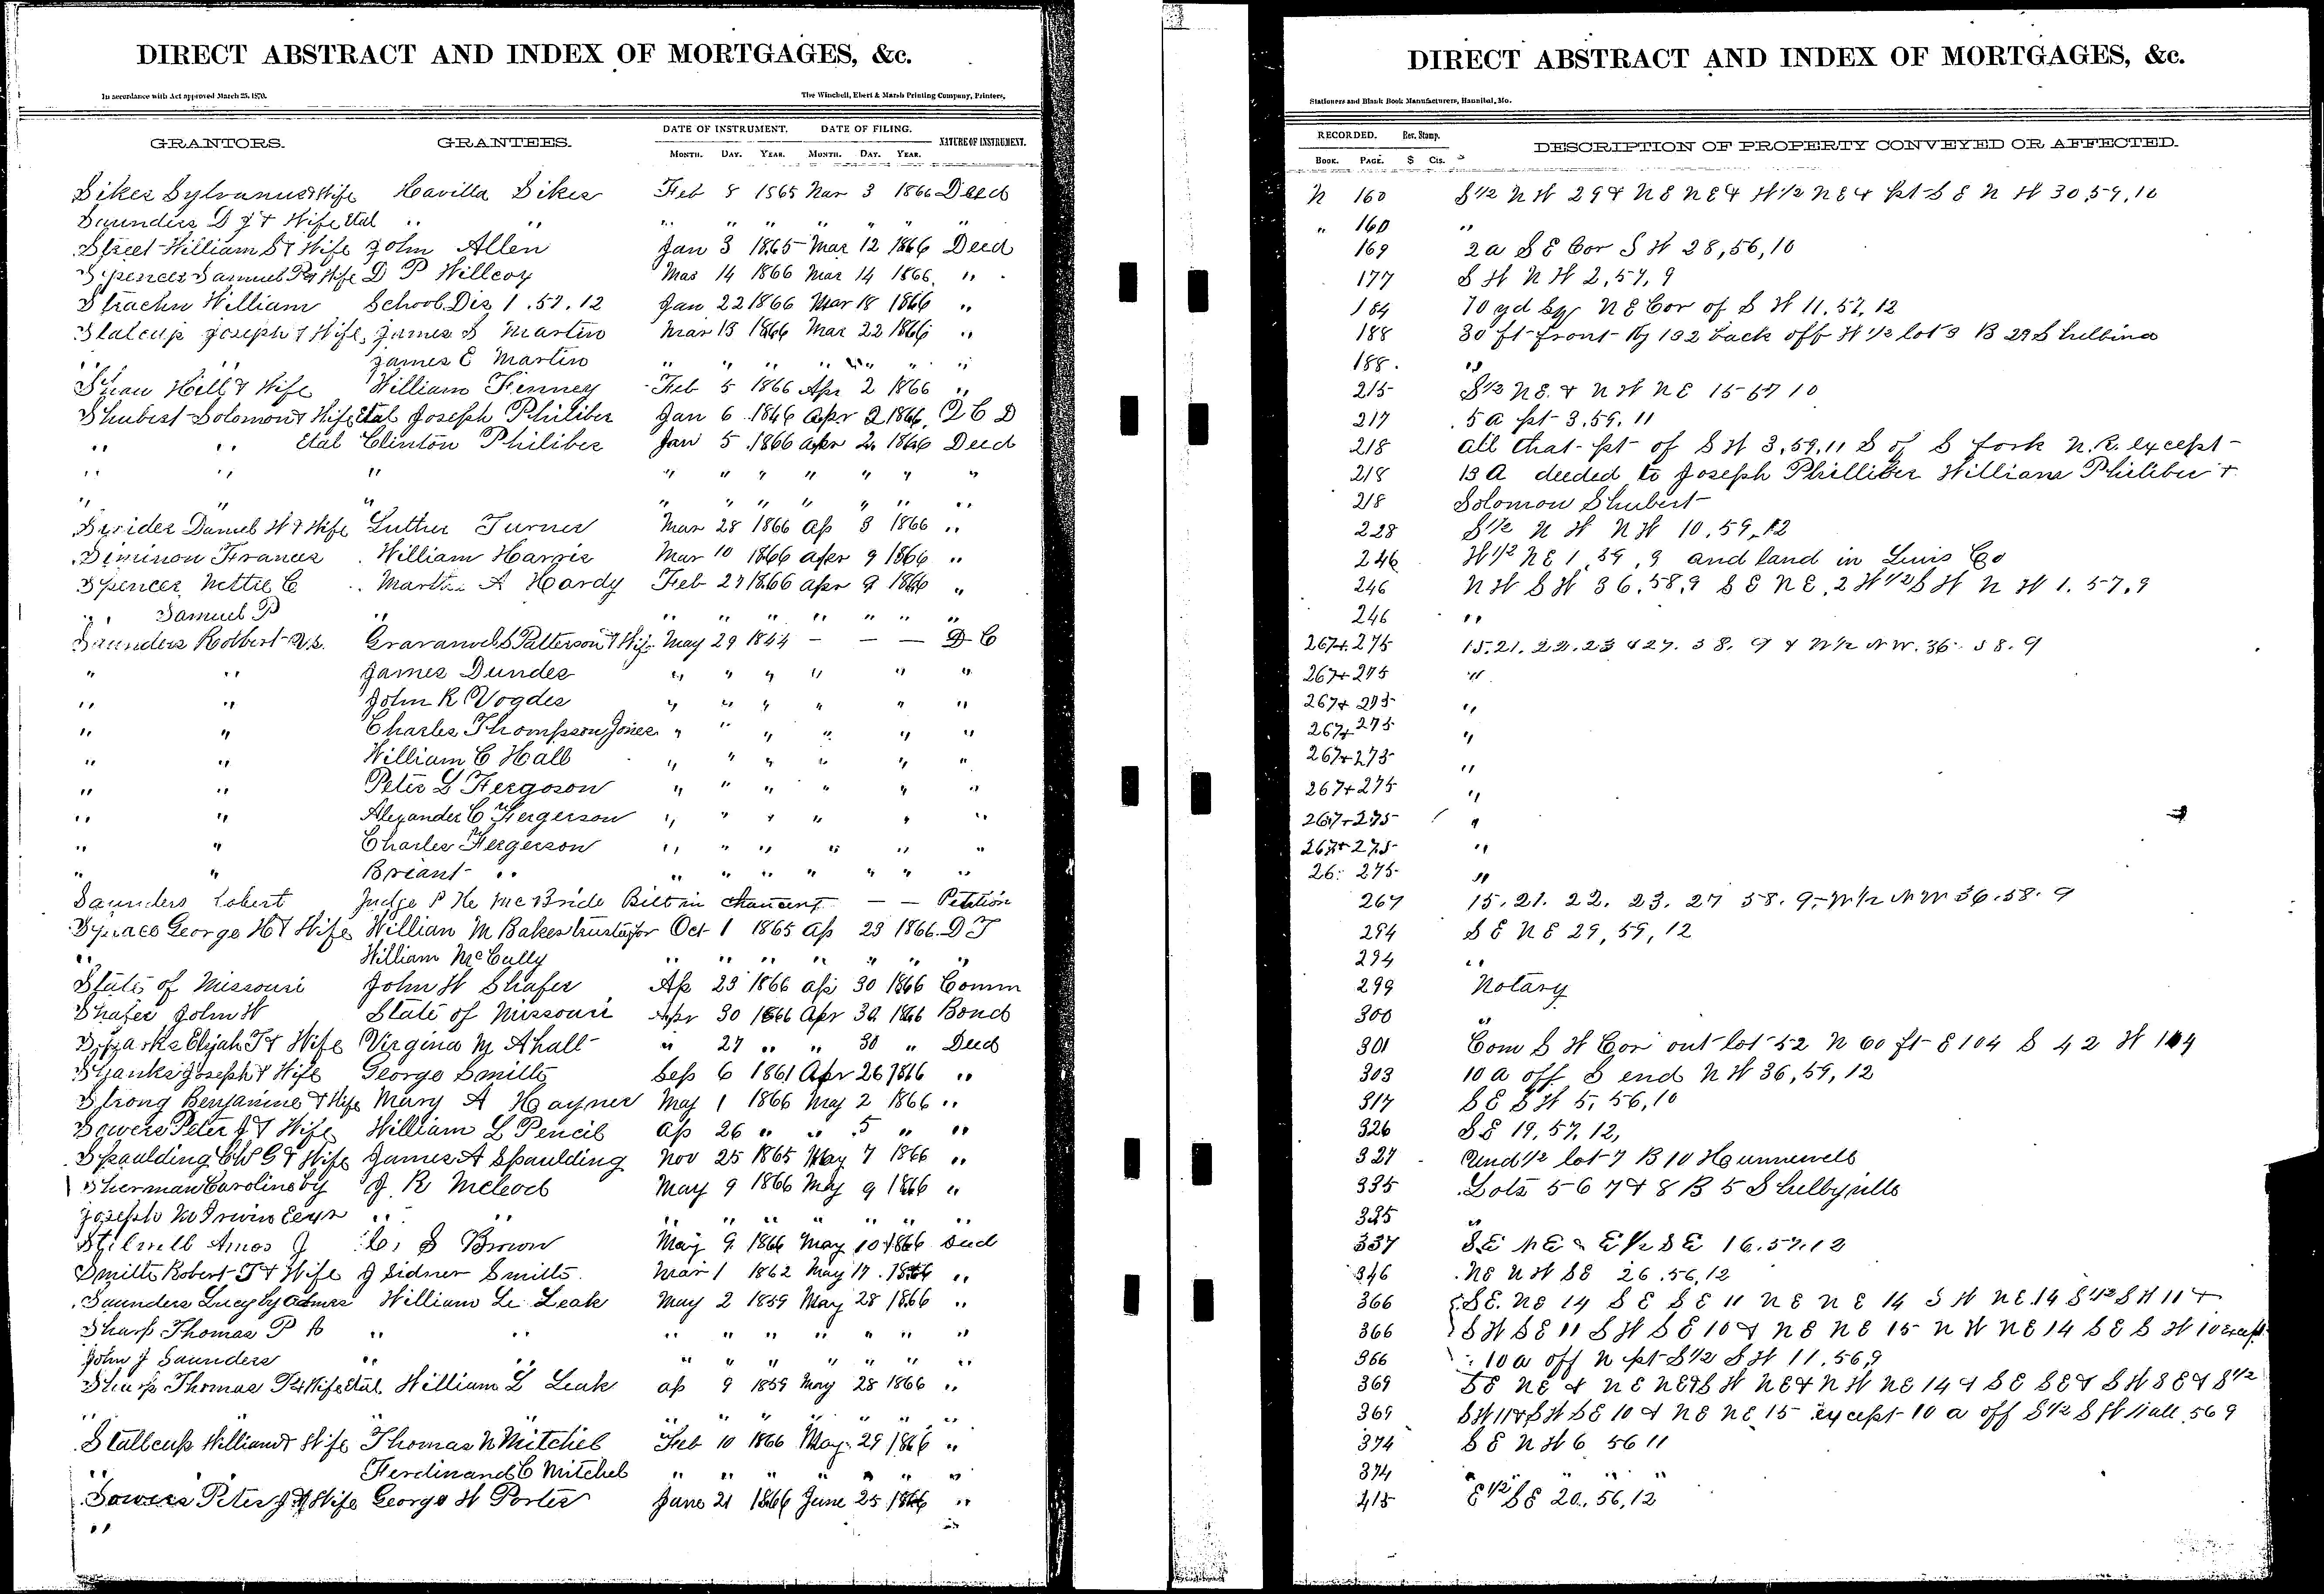 DIRECT ABSTRACT AND INDEX OF MORTGAGES, &c.
In accordance with Act approved March 25, 1870. The Winchell, Ebert & Marsh Printing Company, Printers,
GRANTORS. GRANTEES. DATE OF INSTRUMENT. DATE OF FILING. NATURE OF INSTRUMENT.
MONTH. DAY. YEAR. MONTH. DAY. YEAR.
Sikes Sylvanus & Wife Havilla Sikes Feb 8 1865 Mar 3 1866 Deed
Saunders D J & Wife Etal " " " " " " " " "
Street William S & Wife John Allen Jan 3 1865 Mar 12 1866 Deed
Spencer Samuel P & Wife D P Willcoy Mar 14 1866 Mar 14 1866 "
Strachn William School Dis 1.57.12 Jan 22 1866 Mar 18 1866 "
Stalcup Joseph & Wife James S Martin Mar 13 1866 Mar 22 1866 "
" " James E Martin " " " " " " "
Hill & Wife William Finney Feb 5 1866 Apr 2 1866 "
Shubert Solomon & Wife Etal Joseph Philiber Jan 6 1866 Apr 2 1866 Q C D
" " Etal Clinton Philiber Jan 5 1866 Apr 2 1866 Deed
" " " " " " " " " "
" " " " " " " " " "
Daniel W & Wife Luther Turner Mar 28 1866 Ap 3 1866 "
Frances William Harris Mar 10 1866 Apr 9 1866 "
Spencer Nettie C Martha A Hardy Feb 27 1866 Apr 9 1866 "
" Samuel P " " " " " " " "
Saunders Robbert vs. S Patterson & Wife May 29 1844 — — — D C
" " James Dundes " " " " " "
" " John R Vogdes " " " " " "
" " Charles Thompson Jones " " " " " "
" " William C Hall " " " " " "
" " Peter L Fergoson " " " " " "
" " Alexander C Fergerson " " " " " "
" " Charles Fergerson " " " " " "
" " Briant " " " " " " " "
Saunders Robert Judge P H McBride Bill in Chancery — — Petition
George H & Wife William M Baker trustee for Oct 1 1865 Ap 23 1866 D T
" William McCully " " " " " " "
State of Missouri John W Shafer Ap 23 1866 Ap 30 1866 Comm
Shafer John W State of Missouri Apr 30 1866 Apr 30 1866 Bond
Sparks Elijah T & Wife Virgina M Ahall " 27 " " 30 " Deed
Shanks Joseph & Wife George Smith Sep 6 1861 Apr 26 1866 "
Strong Benjamine & Wife Mary A Hayner May 1 1866 May 2 1866 "
Sowers Peter J & Wife William L Pencil Ap 26 " " 5 " "
Spaulding C W G & Wife James A Spaulding Nov 25 1865 May 7 1866 "
Sherman Caroline by J R McLeod May 9 1866 May 9 1866 "
Joseph M Irwin " " " " " " " " "
Stilwell Amos J C. S Brown May 9 1866 May 10 1866 Deed
Smith Robert T & Wife J Sidner Smith Mar 1 1862 May 17 1866 "
Saunders Lucy by Admrs William L Leak May 2 1859 May 28 1866 "
Sharp Thomas P " " " " " " " " "
John J Saunders " " " " " " " " "
Sharp Thomas P & Wife Etal William L Leak Ap 9 1859 May 28 1866 "
" " " " " " " " "
Stallcup William & Wife Thomas N Mitchel Feb 10 1866 May 29 1866 "
" Ferdinand C Mitchel " " " " " " "
Sowers Peter J & Wife George W Porter June 21 1866 June 25 1866 "
" "
DIRECT ABSTRACT AND INDEX OF MORTGAGES, &c.
Stationers and Blank Book Manufacturers, Hannibal, Mo.
RECORDED. Rev. Stamp. DESCRIPTION OF PROPERTY CONVEYED OR AFFECTED.
BOOK. PAGE. $ Cts.
N 160 S 1/2 N W 29 & N E N E & W 1/2 N E & pt S E N W 30,59,10
" 160 "
169 2 a S E Cor S W 28,56,10
177 S W N W 2,57,9
184 70 yd Sq N E Cor of S W 11.57,12
188 30 ft front by 132 back off W 1/2 lot 3 B 29 Shelbina
188. "
215 S 1/2 N E & N W N E 15 57 10
217 5 a pt 3.59.11
218 all that pt of S W 3,59,11 S of S fork N.R. except
218 13 A deeded to Joseph Philliber William Philiber &
218 Solomon Shubert
228 S 1/2 N W N W 10.59.12
246 W 1/2 N E 1,59,9 and land in Lewis Co
246 N W S W 36.58.9 S E N E 2 W 1/2 S W N W 1.57.9
246 "
267+275 15.21.22.23 & 27.58.9 & W 1/2 N W.36.58.9
267+275 "
267+275 "
267+275 "
267+275 "
267+275 "
267+275 "
267+275 "
26: 275 "
267 15.21.22.23.27 58.9. W 1/2 N W 36.58.9
294 S E N E 29,59,12
294 "
299 Notary
300 "
301 Com S W Cor out lot 52 N 60 ft E 104 S 42 W 104
303 10 a off S end N W 36,59,12
317 S E S W 5,56,10
326 S E 19.57.12,
327 Und 1/2 lot 7 B 10 Hunnewell
335 Lots 5 6 7 & 8 B 5 Shelbyville
335 "
337 S E N E & E 1/2 S E 16.57.12
346 N E N W S E 26.56,12
366 S E. N E 14 S E S E 11 N E N E 14 S W N E.14 S 1/2 S W 11 &
366 S W S E 11 S W S E 10 & N E N E 15 N W N E 14 S E S W 10 except
366 10 a off N pt S 1/2 S W 11.56,9
369 S E N E & N E N E & S W N E & N W N E 14 & S E S E & S W S E & S 1/2
369 S W 11 & S W S E 10 & N E N E 15 except 10 a off S 1/2 S W 11 all 56 9
374 S E N W 6 56 11
374 " " " "
415 E 1/2 S E 20,56,12